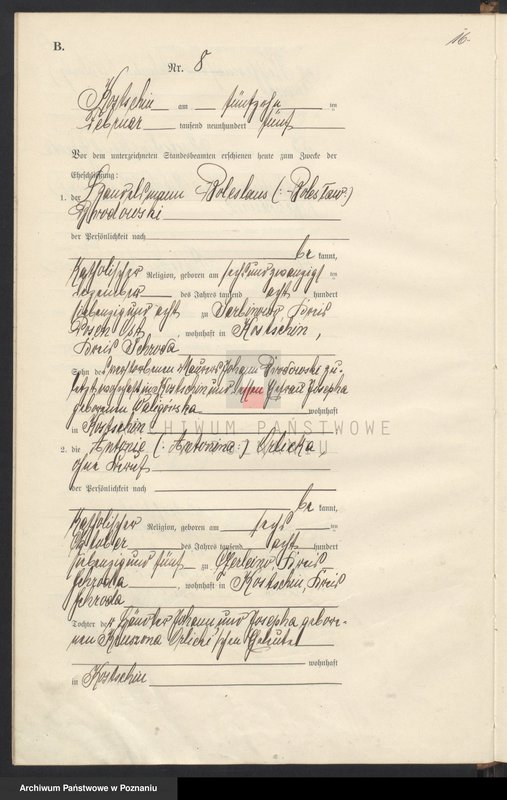 16.
B.
Nr. 8
Kostschin am fünfzehn ten
Februar tausend neunhundert fünf
Vor dem unterzeichneten Standesbeamten erschienen heute zum Zwecke der
Eheschließung:
1. der Handelsmann Boleslaus (: Bolesław :)
Brodowski
der Persönlichkeit nach
be kannt,
katholischer Religion, geboren am sechsundzwanzigsten
Dezember des Jahres tausend acht hundert
siebenzig und acht zu Kreis
Posen Ost, wohnhaft in Kostschin,
Kreis Schroda
Sohn des verstorbenen Maurers Johann Brodowski zu-
letzt wohnhaft in Kostschin und dessen Ehefrau Josepha
geborenen wohnhaft
in Kostschin
ARCHIWUM PAŃSTWOWE
2. die Antonie (: Antonina :) Orlicka,
ohne Beruf
der Persönlichkeit nach
be kannt,
katholischer Religion, geboren am sechs ten
Oktober des Jahres tausend acht hundert
siebenzig und fünf zu Kreis
Schroda, wohnhaft in Kostschin, Kreis
Schroda
Tochter der Händler Johann und Josepha gebore-
nen Orlicki'schen Eheleute
wohnhaft
in Kostschin
Archiwum Państwowe w Poznaniu